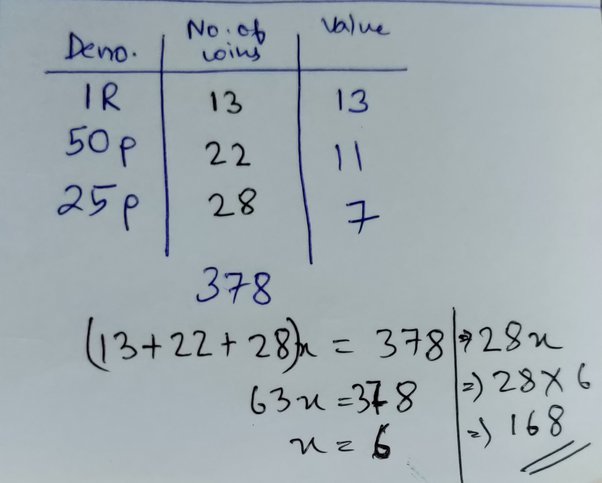 Deno. No. of coins Value
1R 13 13
50p 22 11
25p 28 7
378
(13+22+28)x = 378
63x = 378
x = 6
⇒ 28x
⇒ 28 × 6
⇒ 168